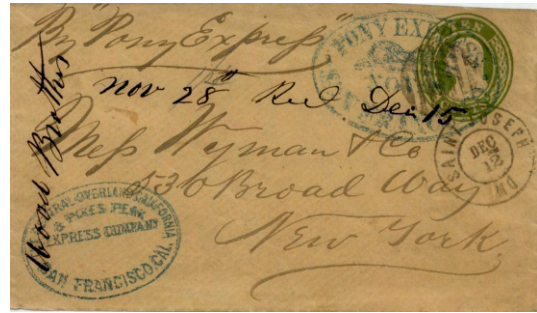 By "Pony Express"
PONY EXPRESS
TEN
Nov 28th Recd Dec 15
Wood Brother
Mess Wyman & Co
530 Broad Way
New York
SAINT JOSEPH MO
DEC
12
CENTRAL OVERLAND CALIFORNIA
& PIKES PEAK
EXPRESS COMPANY
SAN FRANCISCO, CAL.